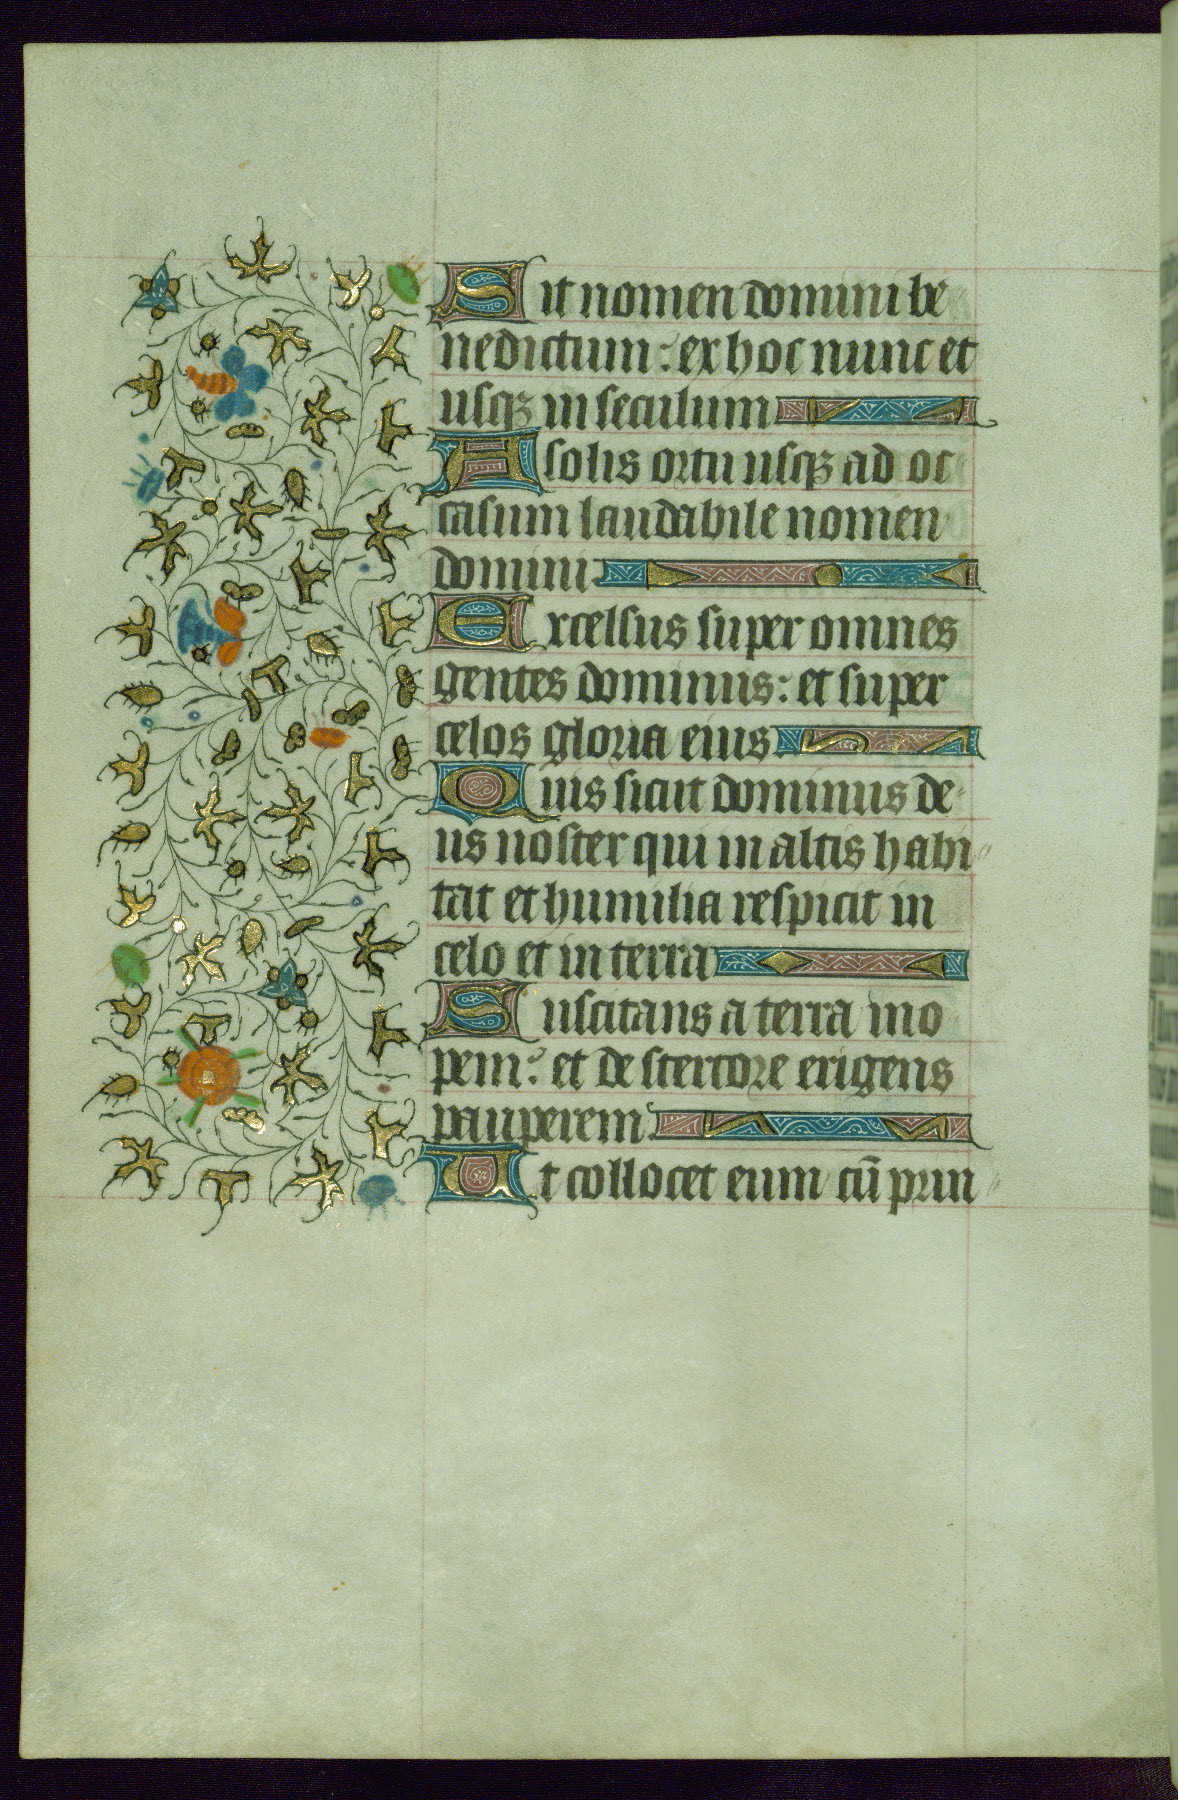 Sit nomen domini be
nedictum: ex hoc nunc et
usqꝫ in seculum
A solis ortu usqꝫ ad oc
casum laudabile nomen
domini
Excelsus super omnes
gentes dominus: et super
celos gloria eius
Quis sicut dominus de-
us noster qui in altis habi-
tat et humilia respicit in
celo et in terra
Suscitans a terra ino
pem: et de stercore erigens
pauperem
Ut collocet eum cū prin-